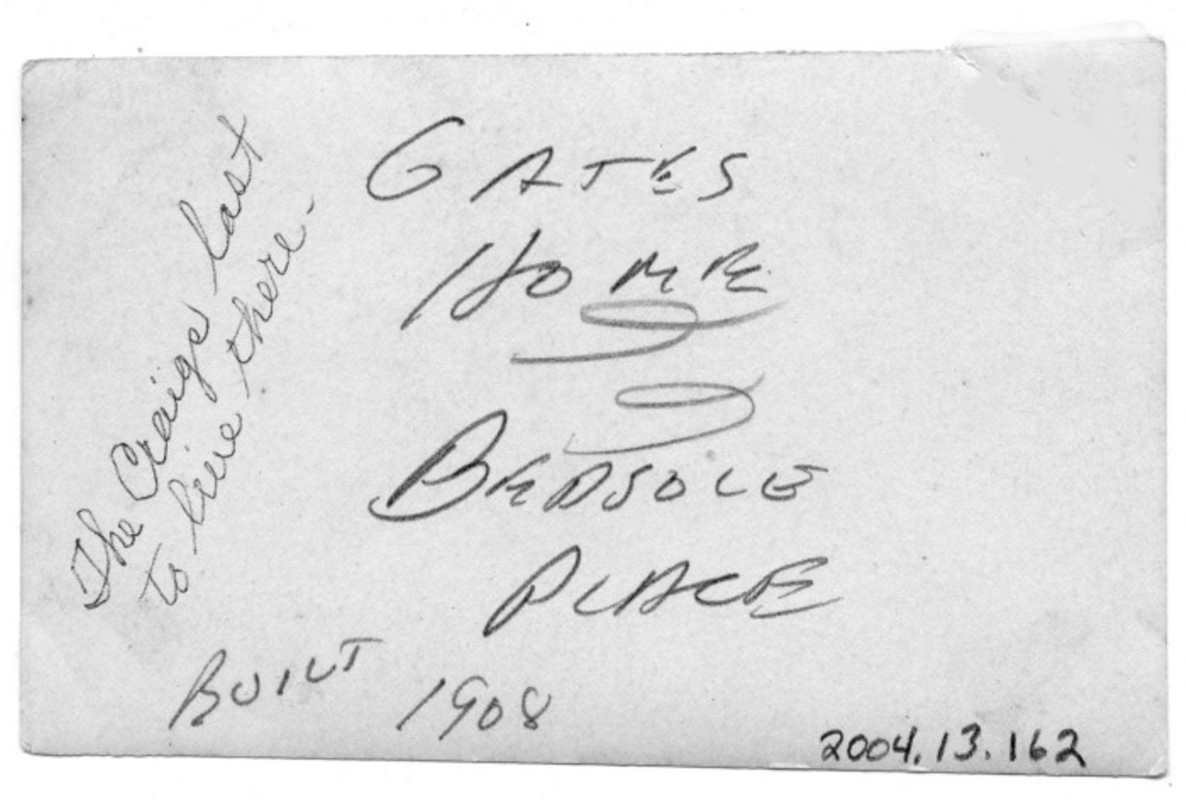 GATES
HOME
BEDSOLE
PLACE
BUILT 1908
The Craigs last
to live there.
2004.13.162